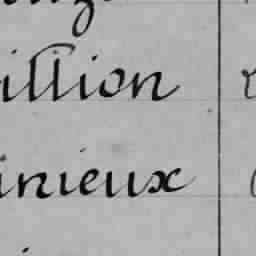 illion
inieux